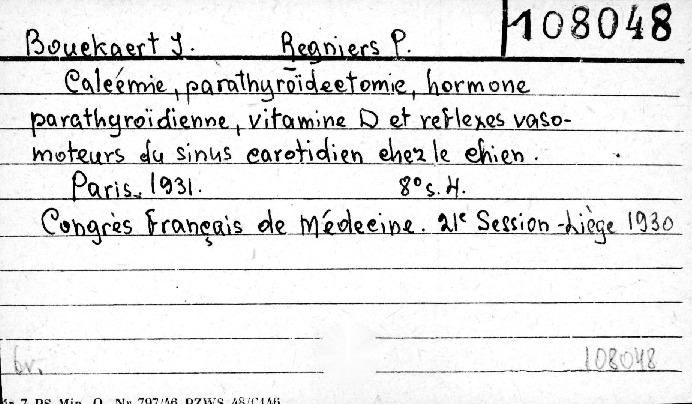 108048
Bouckaert J. Regniers P.
Calcémie, parathyroïdectomie, hormone
parathyroïdienne, vitamine D et reflexes vaso-
moteurs du sinus carotidien chez le chien.
Paris, 1931. 8° s. 4.
Congrès Français de Médecine. 21e Session - Liège 1930
br. 108048
7 PS Min. O. Nr 797/46 PZWS 48/C146